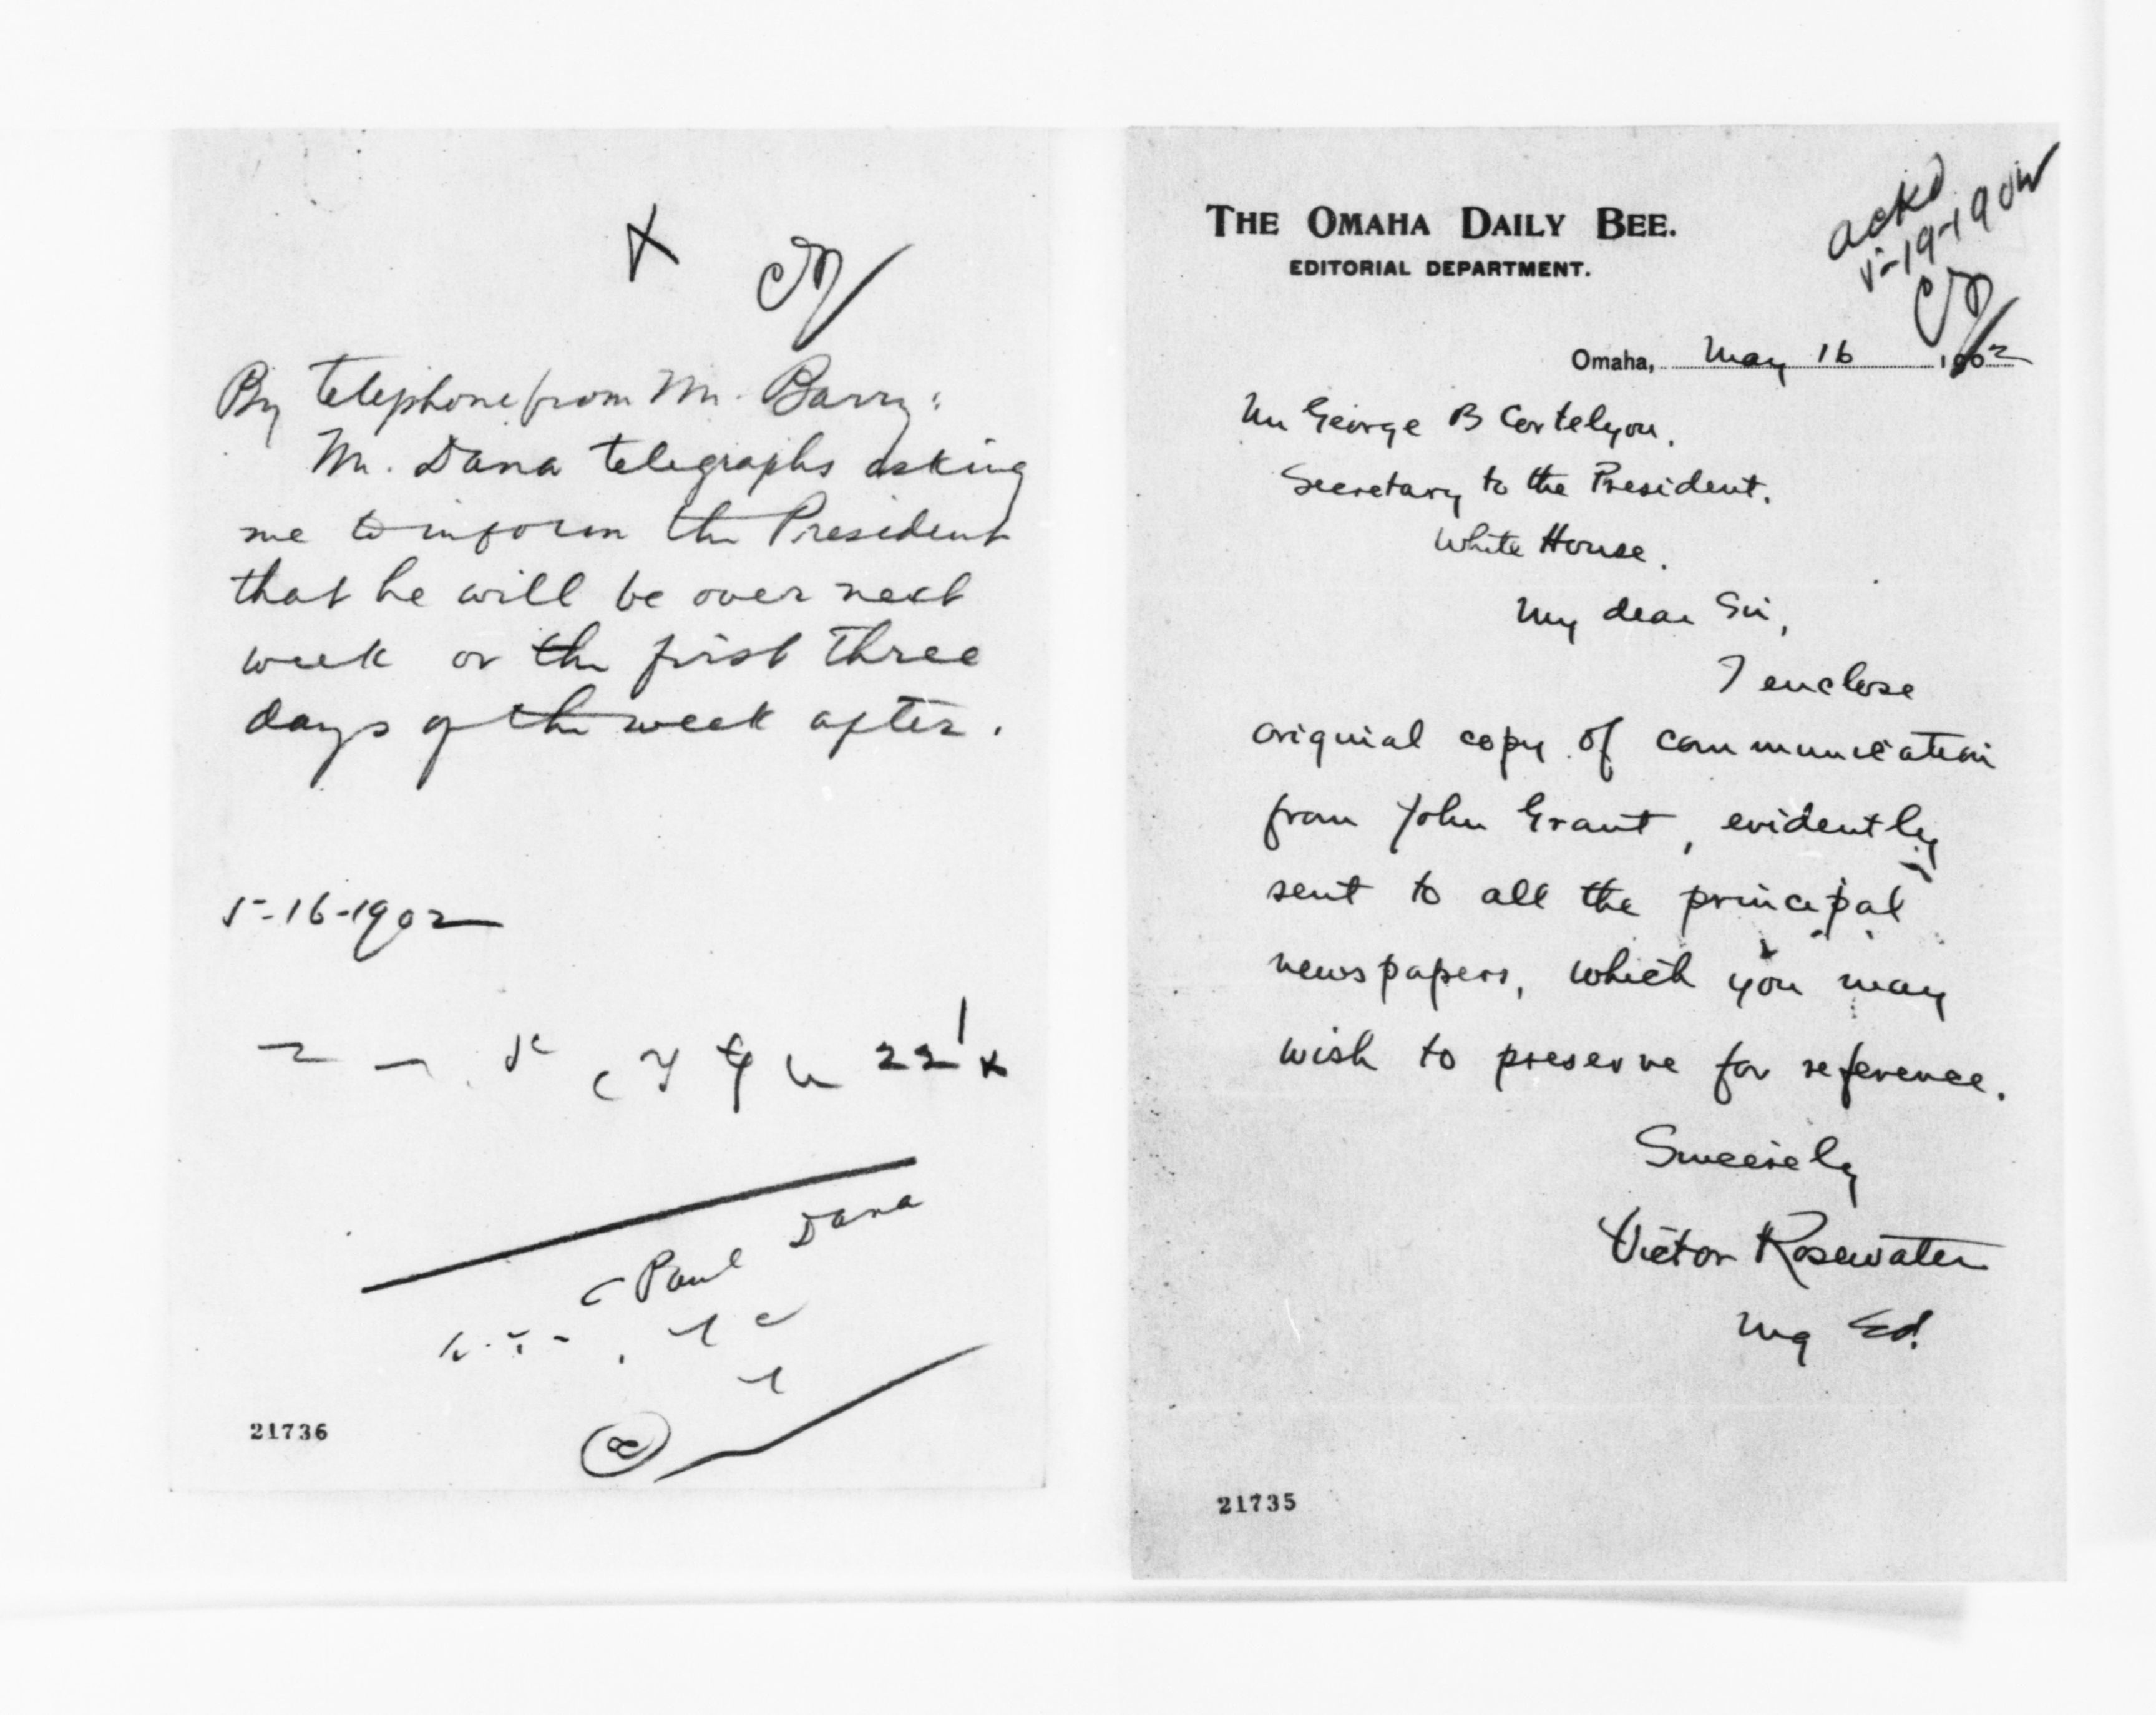 X
By telephone from Mr. Barry:
Mr. Dana telegraphs asking
me to inform the President
that he will be over next
week or the first three
days of the week after.
5-16-1902
22
Paul Dana
21736
THE OMAHA DAILY BEE.
EDITORIAL DEPARTMENT.
ackd
5-19-1902
Omaha, May 16 1902
Mr George B Cortelyou,
Secretary to the President.
White House.
My dear Sir,
I enclose
original copy of communication
from John Grant, evidently
sent to all the principal
newspapers, which you may
wish to preserve for reference.
Sincerely
Victor Rosewater
Mg Ed.
21735